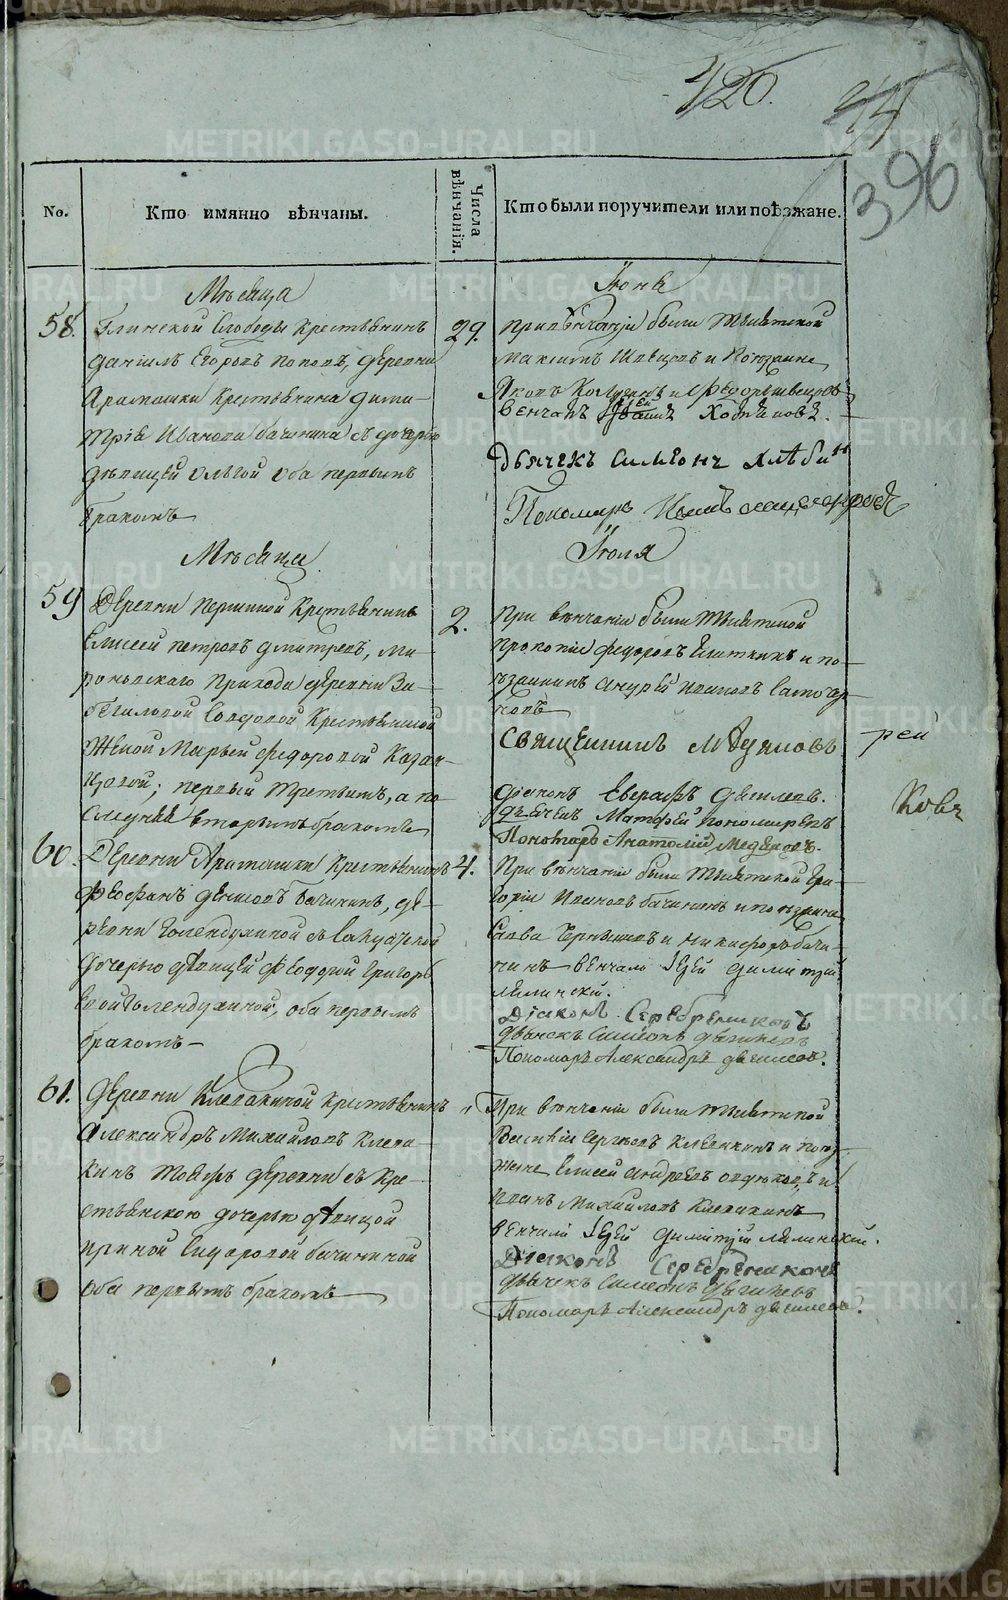 426.
396
No.
Кто имянно вѣнчаны.
Числа вѣнчанія.
Кто были поручители или поѣзжане.
Мѣсяца
Іюня
58.
Глинской слободы крестьянинъ
Данiилъ Егоровъ Поповъ, деревни
Арамашки крестьянина Дими-
трія Иванова Бачинина съ дочерью
дѣвицей Ольгой оба первымъ
бракомъ
29.
При вѣнчаніи были тысятской
Максимъ Швецовъ и поѣзжане
Яковъ и Федоръ Швецовъ
венчалъ
Дьячекъ Симеонъ Хлѣбин
Пономарь
Мѣсяца
Іюля
59
Деревни Першиной крестьянинъ
Елисей Петровъ Дмитревъ, Ми-
роновскаго прихода деревни
солдовой крестьянской
женой Марьей Федоровой Казан-
цовой; первый третьимъ, а по-
следняя вторымъ бракомъ
2.
При вѣнчаніи были тысятской
Прокопій Федоровъ и по-
ѣзжанинъ Андрей Ивановъ
Священникъ Медяковъ
рей
Діаконъ Евграфъ Дягилевъ.
Дьячекъ Матфей Пономаревъ
Пономарь Анатолій Медяковъ.
60.
Деревни Арамашки крестьянинъ
Феофанъ Денисовъ Бачининъ, де-
ревни Голендухиной съ
дочерью дѣвицей Феодорой Григорь-
евой Голендухиной, оба первымъ
бракомъ
4.
При вѣнчаніи были тысятской Гри-
горій Ивановъ Бачининъ и поѣзжана
Савва и Никифоръ Бачи-
нинъ венчалъ Іерей Димитрій
Лялинскій.
Діаконъ Серебрениковъ
Дьячекъ Симеонъ Дягилевъ
Пономарь Александръ Дягилевъ.
61.
Деревни Клевакиной крестьянинъ
Александръ Михайловъ Клева-
кинъ тоежъ деревни съ кре-
стьянскою дочерью дѣвицой
Ириной Сидоровой Бачининой
оба первымъ бракомъ
"
При вѣнчаніи были тысятской
Василій Сергеевъ Клевакинъ и поѣз-
жане Елисей Андреевъ и
Иванъ Михайловъ Клевакинъ
венчалъ Іерей Димитрій Лялинскій.
Діаконъ Серебрениковъ
Дьячекъ Симеонъ Дягилевъ
Пономарь Александръ Дягилевъ.
METRIKI.GASO-URAL.RU